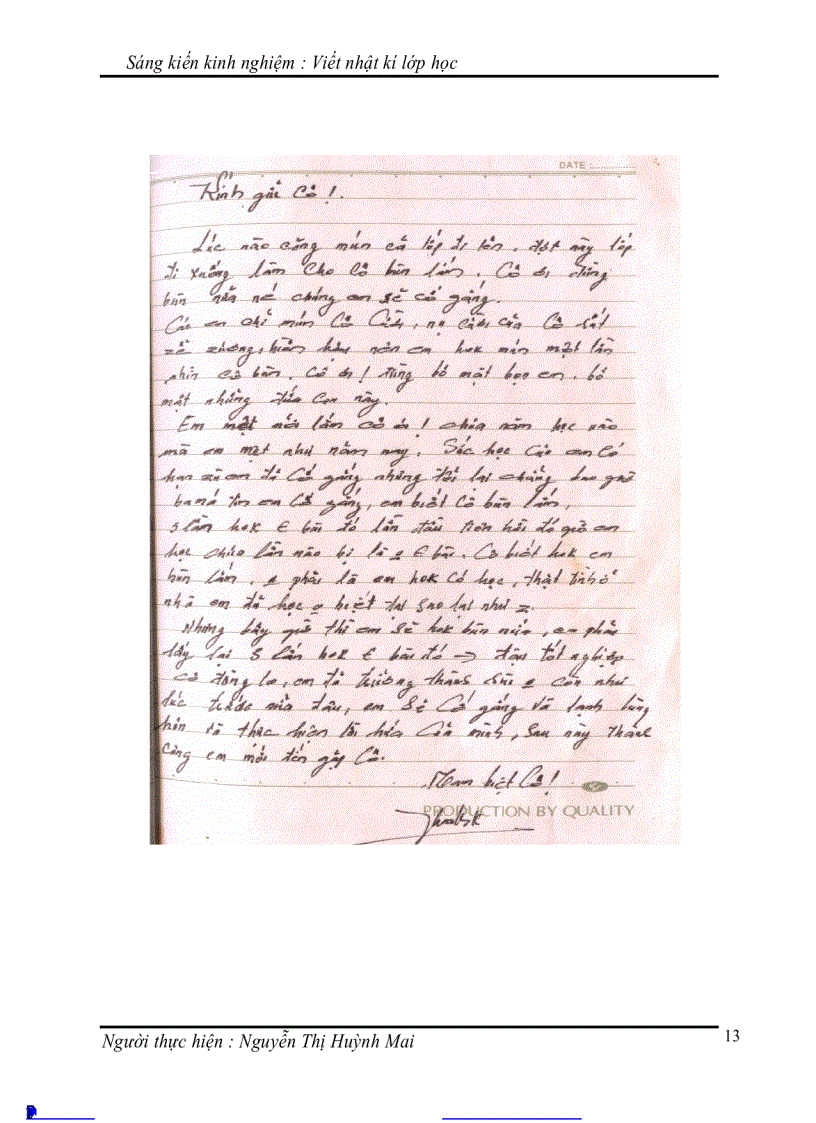 Sáng kiến kinh nghiệm : Viết nhật kí lớp học
DATE :
Kính gửi Cô !.
Lúc nào cũng mún cả lớp đi lên, đợt này lớp
đi xuống làm cho cô bùn lắm. Cô ơi đừng
bùn nữa né chúng em sẽ cố gắng.
Các em chỉ mún Cô Cười, nụ cười của Cô rất
dễ thương, hiền hậu nên em hok mún một lần
nhìn cô bùn. Cô ơi ! đừng bỏ mặt bọn em, bỏ
mặt những đứa con này.
Em mệt mỏi lắm cô ơi ! chưa năm học nào
mà em mệt như năm nay. Sức học của em có
hạn em đã cố gắng nhưng tới lại chẳng bao giờ
ba má tin em cố gắng, em biết cô bùn lắm,
3 lần hok € bài đó lần đầu tiên hồi đó giờ em
học chưa lần nào bị là € bài. Cô biết hok em
bùn lắm. phải là em hok có học, thật tình ở
nhà em đã học biết tại sao lại như z.
Nhưng bây giờ thì em sẽ hok bùn nữa, em phải
lấy lại 3 lần hok € bài đó → đậu tốt nghiệp
cô đừng lo, em đã trưởng thành rồi còn như
lúc trước nữa đâu, em sẽ cố gắng và lạnh lùng
hơn và thực hiện lời hứa của mình, sau này thành
công em mới đến gặp Cô.
Mam biệt Cô !
PRODUCTION BY QUALITY
Người thực hiện : Nguyễn Thị Huỳnh Mai
13